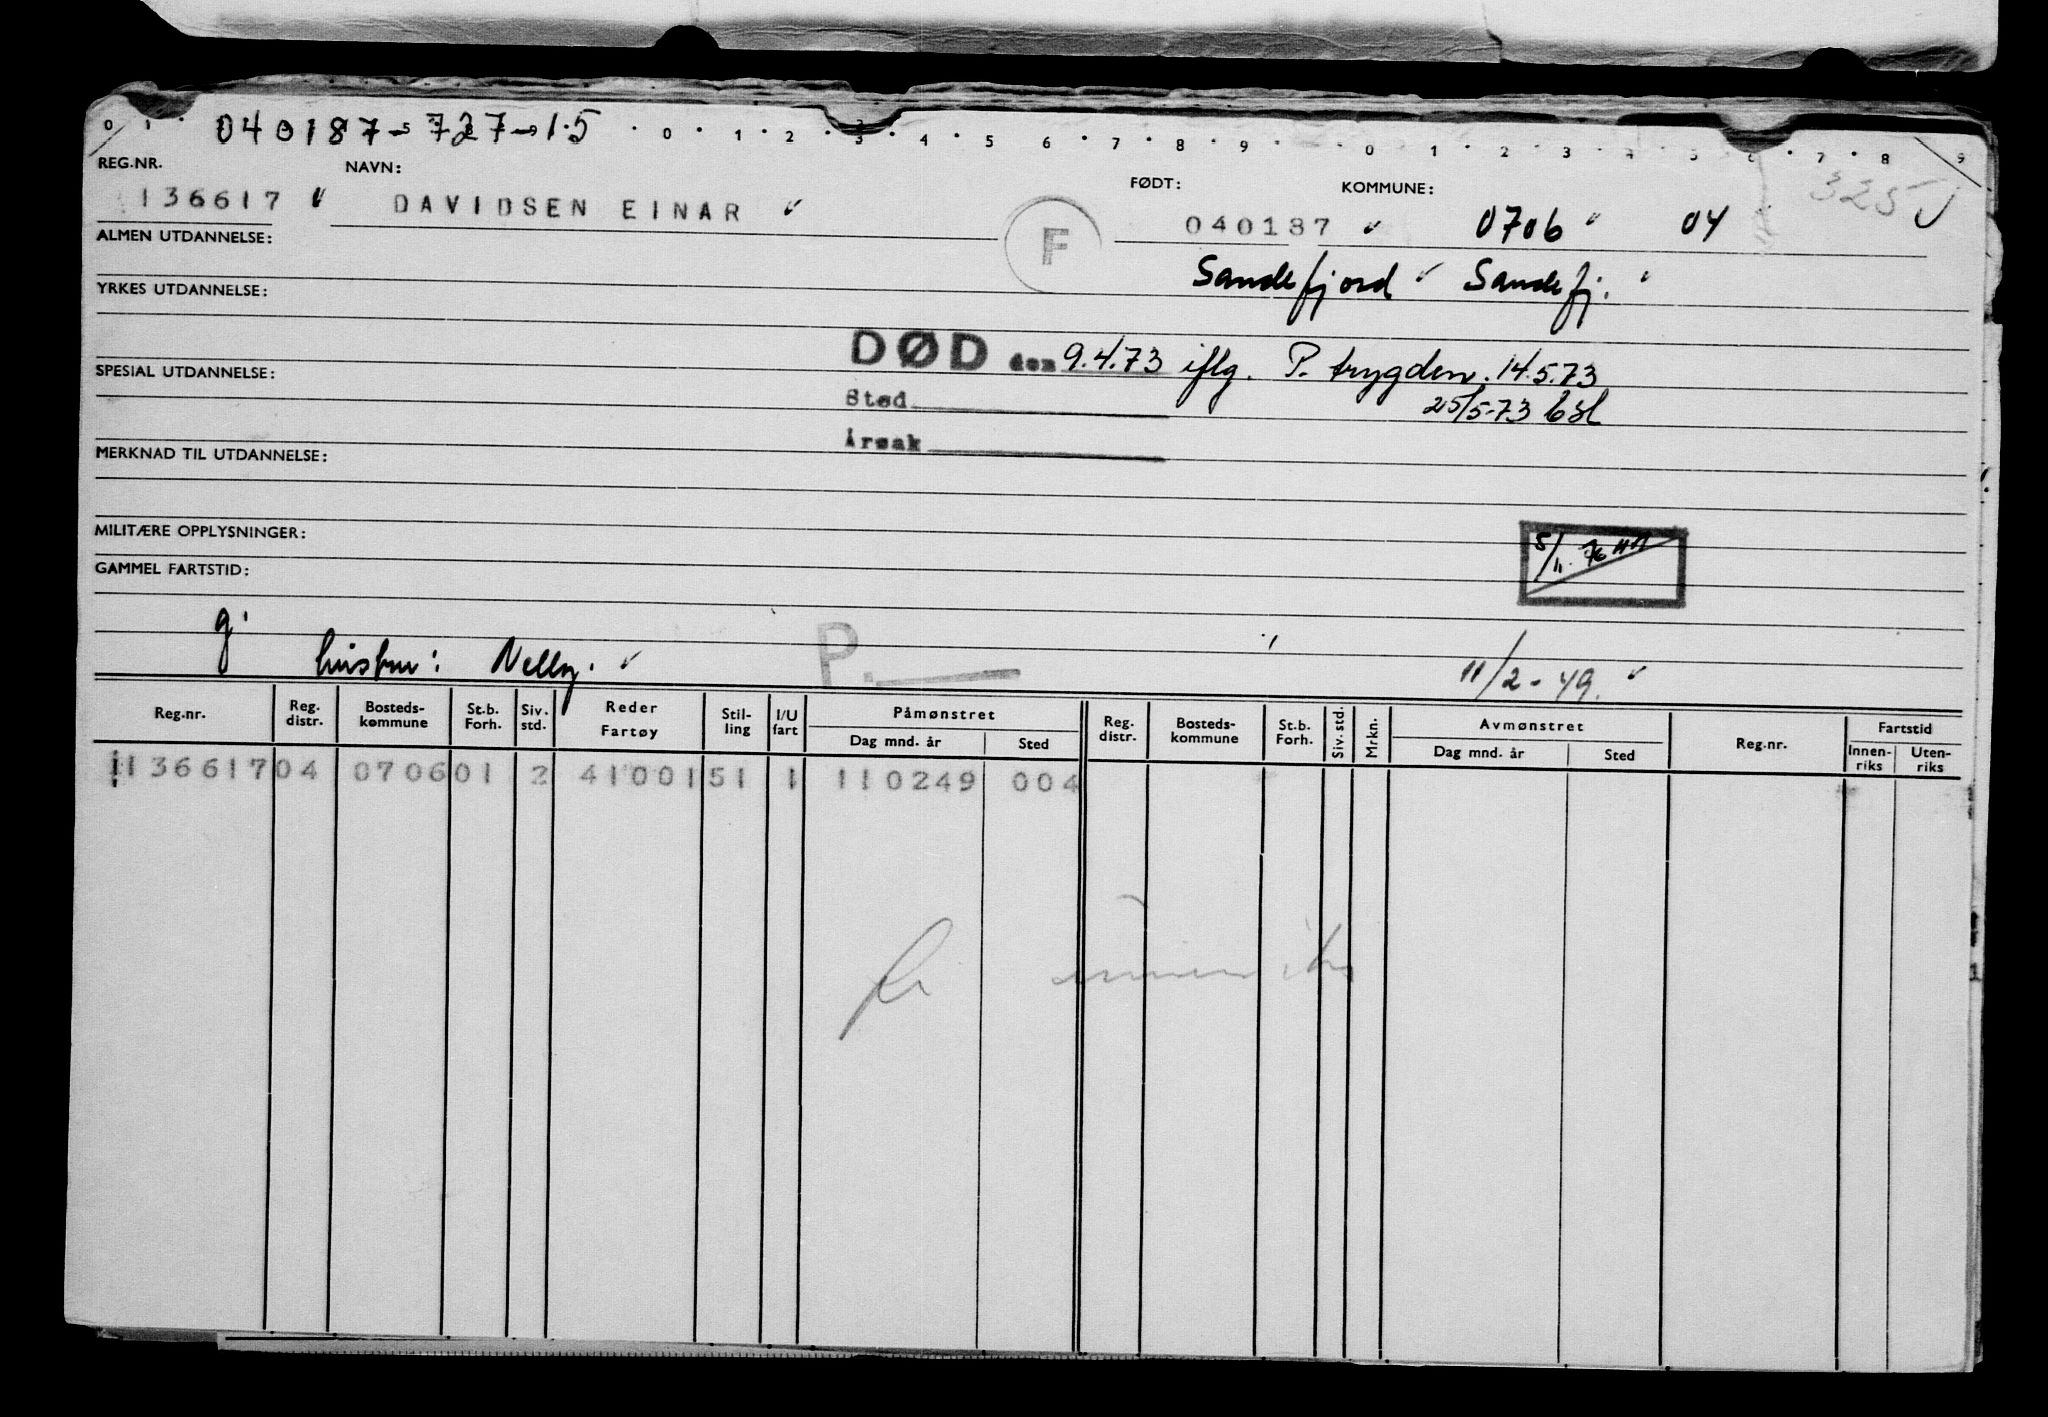 0 1 · 040187-727-15 · 0 · 1 · 2 · 3 · 4 · 5 · 6 · 7 · 8 · 9 · · 0 · 1 · 2 · 3 · 4 · 5 · 6 · 7 · 8 · 9
REG.NR. NAVN: FØDT: KOMMUNE: 325
136617 DAVIDSEN EINAR F 040187 0706 04
ALMEN UTDANNELSE:
Sandefjord Sandefj.
YRKES UTDANNELSE:
DØD den 9.4.73 iflg. P. trygden. 14.5.73
SPESIAL UTDANNELSE:
Sted 25/5-73
Årsak
MERKNAD TIL UTDANNELSE:
MILITÆRE OPPLYSNINGER:
5/11. 76
GAMMEL FARTSTID:
g.
hustru: Nelly. P. 11/2-49.
Reg.nr. Reg. distr. Bosteds- kommune St.b. Forh. Siv. std. Reder Fartøy Stil- ling I/U fart Påmønstret Dag mnd. år Sted Reg. distr. Bosteds- kommune St.b. Forh. Siv. std. Mrkn. Avmønstret Dag mnd. år Sted Reg.nr. Fartstid Innen- riks Uten- riks
136617 04 0706 01 2 41001 51 1 110249 004